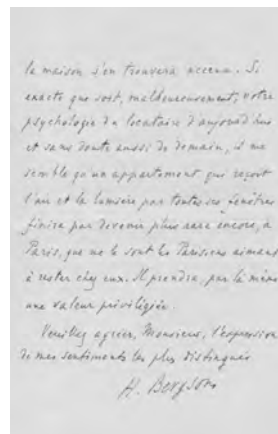 la maison s'en trouvera accrue. Si
exacte que soit, malheureusement, votre
psychologie du locataire d'aujourd'hui
et sans doute aussi de demain, il me
semble qu'un appartement qui reçoit
l'air et la lumière par toutes ses fenêtres
finira par devenir plus rare encore, à
Paris, que ne le sont les Parisiens aimant
à rester chez eux. Il prendra, par là même
une valeur privilégiée.
Veuillez agréer, Monsieur, l'expression
de mes sentiments les plus distingués
H. Bergson